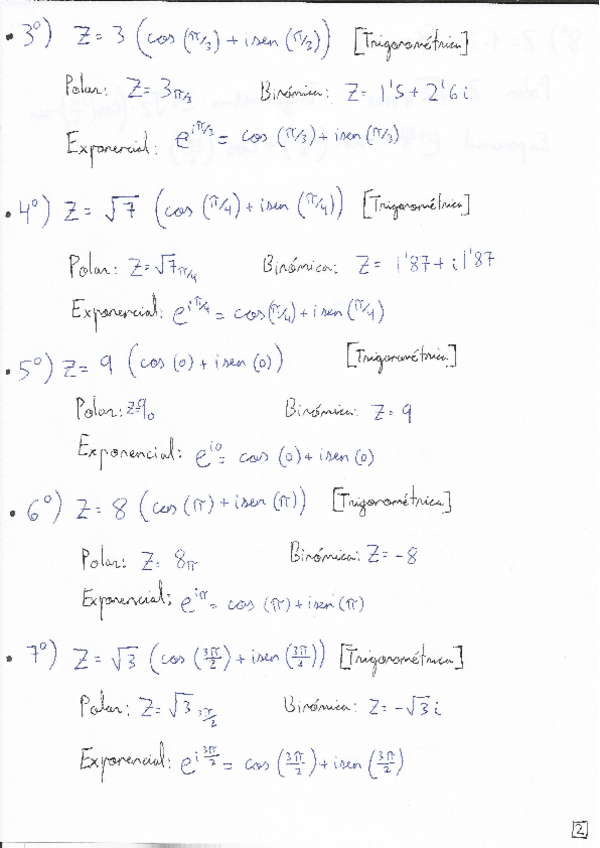 • 3º) Z = 3 (cos (π/3) + i sen (π/3)) [Trigonométrica]
Polar: Z = 3π/3 Binómica: Z = 1'5 + 2'6 i
Exponencial: e^iπ/3 = cos (π/3) + i sen (π/3)
• 4º) Z = √7 (cos (π/4) + i sen (π/4)) [Trigonométrica]
Polar: Z = √7π/4 Binómica: Z = 1'87 + i 1'87
Exponencial: e^iπ/4 = cos (π/4) + i sen (π/4)
• 5º) Z = 9 (cos (0) + i sen (0)) [Trigonométrica]
Polar: Z=9₀ Binómica: Z = 9
Exponencial: e^i0 = cos (0) + i sen (0)
• 6º) Z = 8 (cos (π) + i sen (π)) [Trigonométrica]
Polar: Z = 8π Binómica: Z = -8
Exponencial: e^iπ = cos (π) + i sen (π)
• 7º) Z = √3 (cos (3π/2) + i sen (3π/2)) [Trigonométrica]
Polar: Z = √3 3π/2 Binómica: Z = -√3 i
Exponencial: e^i3π/2 = cos (3π/2) + i sen (3π/2)
2